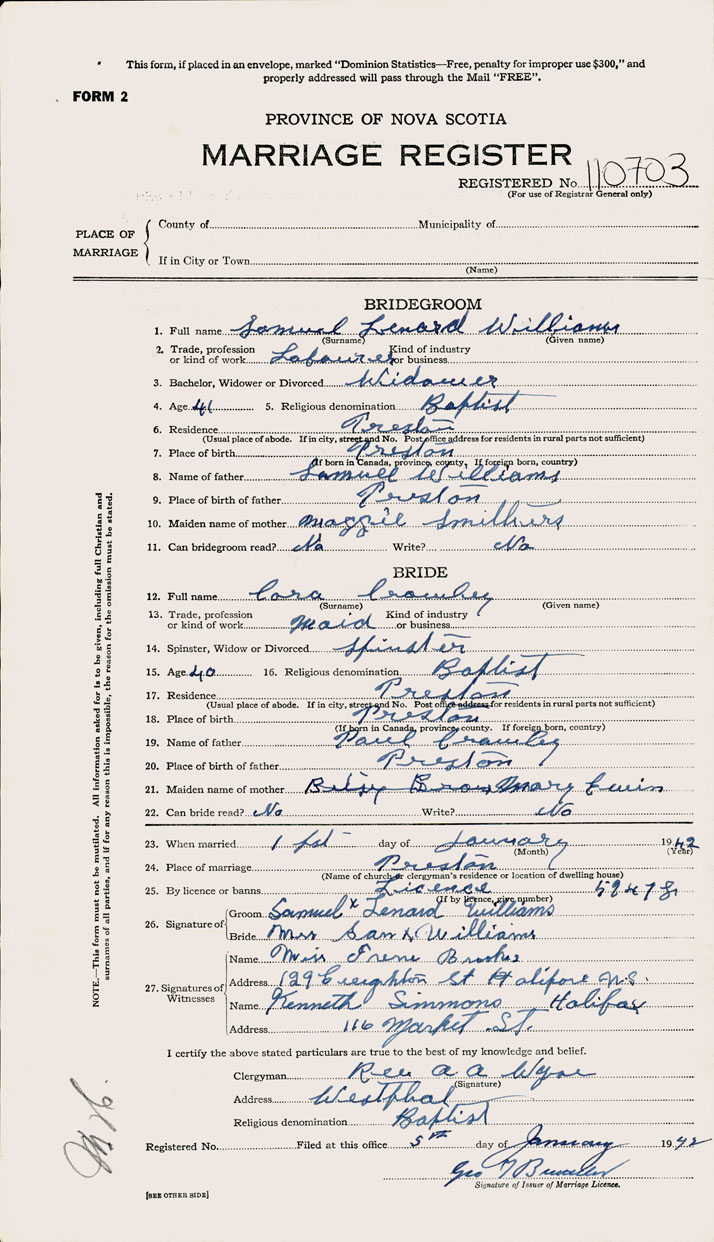 This form, if placed in an envelope, marked "Dominion Statistics—Free, penalty for improper use $300," and
properly addressed will pass through the Mail "FREE".
FORM 2
PROVINCE OF NOVA SCOTIA
MARRIAGE REGISTER
REGISTERED No. 110703
(For use of Registrar General only)
PLACE OF MARRIAGE
County of Municipality of
If in City or Town
(Name)
BRIDEGROOM
1. Full name Samual Lenard Williams
(Surname) (Given name)
2. Trade, profession or kind of work Labourer Kind of industry or business
3. Bachelor, Widower or Divorced Widower
4. Age 41 5. Religious denomination Baptist
6. Residence Preston
(Usual place of abode. If in city, street and No. Post office address for residents in rural parts not sufficient)
7. Place of birth Preston
(If born in Canada, province, county, If foreign born, country)
8. Name of father Samuel Williams
9. Place of birth of father Preston
10. Maiden name of mother Maggie Smithers
11. Can bridegroom read? No Write? No
BRIDE
12. Full name Cora Crawley
(Surname) (Given name)
13. Trade, profession or kind of work Maid Kind of industry or business
14. Spinster, Widow or Divorced Spinster
15. Age 40 16. Religious denomination Baptist
17. Residence Preston
(Usual place of abode. If in city, street and No. Post office address for residents in rural parts not sufficient)
18. Place of birth Preston
(If born in Canada, province, county. If foreign born, country)
19. Name of father Paul Crawley
20. Place of birth of father Preston
21. Maiden name of mother Betsy Brow Mary Ewin
22. Can bride read? No Write? No
23. When married 1 st day of January 1942
(Month) (Year)
24. Place of marriage Preston
(Name of church or clergyman's residence or location of dwelling house)
25. By licence or banns Licence
(If by licence, give number)
26. Signature of
Groom Samuel x Lenard Williams
Bride Mrs Sam x Williams
27. Signatures of Witnesses
Name Miss Irene Brooks
Address 129 Creighton St Halifax N.S.
Name Kenneth Simmons Halifax
Address 116 Market St.
I certify the above stated particulars are true to the best of my knowledge and belief.
Clergyman Rev A A Wyse
(Signature)
Address Westphal
Religious denomination Baptist
Registered No. Filed at this office 5th day of January 1942
Geo
Signature of Issuer of Marriage Licence.
[SEE OTHER SIDE]
NOTE.—This form must not be mutilated. All information asked for is to be given, including full Christian and
surnames of all parties, and if for any reason this is impossible, the reason for the omission must be stated.